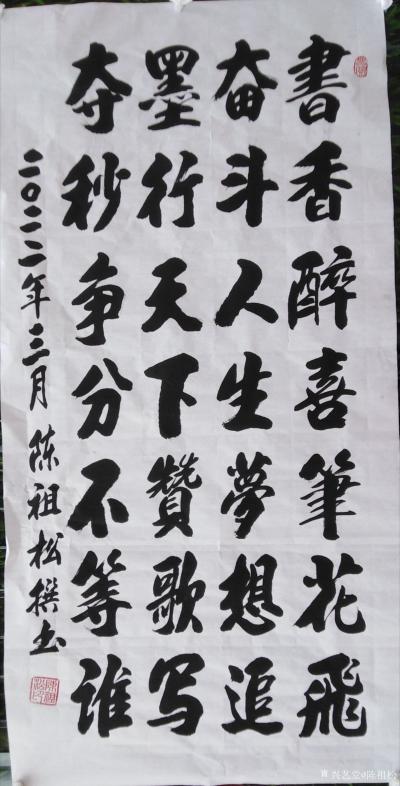 書香醉喜筆花飛
奋斗人生夢想追
墨行天下贊歌写
夺秒争分不等谁
二〇二二年三月陈祖松撰书
兴艺堂@陈祖松